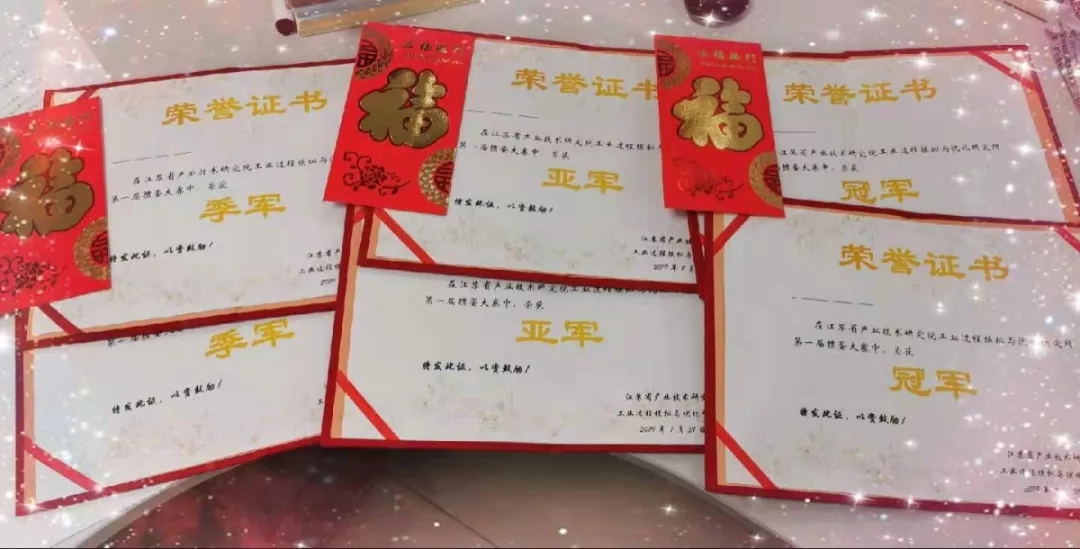 福
荣誉证书
在江苏省产业技术研究院工业过程模拟与
第一届掼蛋大赛中，荣获
季军
特发此证，以资鼓励！
江苏省产
工业过程模
五福临门
福
荣誉证书
在江苏省产业技术研究院工业过程模拟
第一届掼蛋大赛中，荣获
亚军
特发此证，以资鼓励！
江苏省产业技
工业过程模拟
2019年1月
五福临门
福
荣誉证书
江苏省产业技术研究院工业过程模拟与优化研究所
掼蛋大赛中，荣获
冠军
季军
特发此证，以资鼓励！
在江苏省产业技术研究院工业过程模拟与
第一届掼蛋大赛中，荣获
亚军
特发此证，以资鼓励！
江苏省产业技术研究
工业过程模拟与优化研
2019年1月27日
荣誉证书
在江苏省产业技术研究院工业过程模拟与优化研究所
第一届掼蛋大赛中，荣获
冠军
特发此证，以资鼓励！
江苏省产业技术研
工业过程模拟与优
2019年